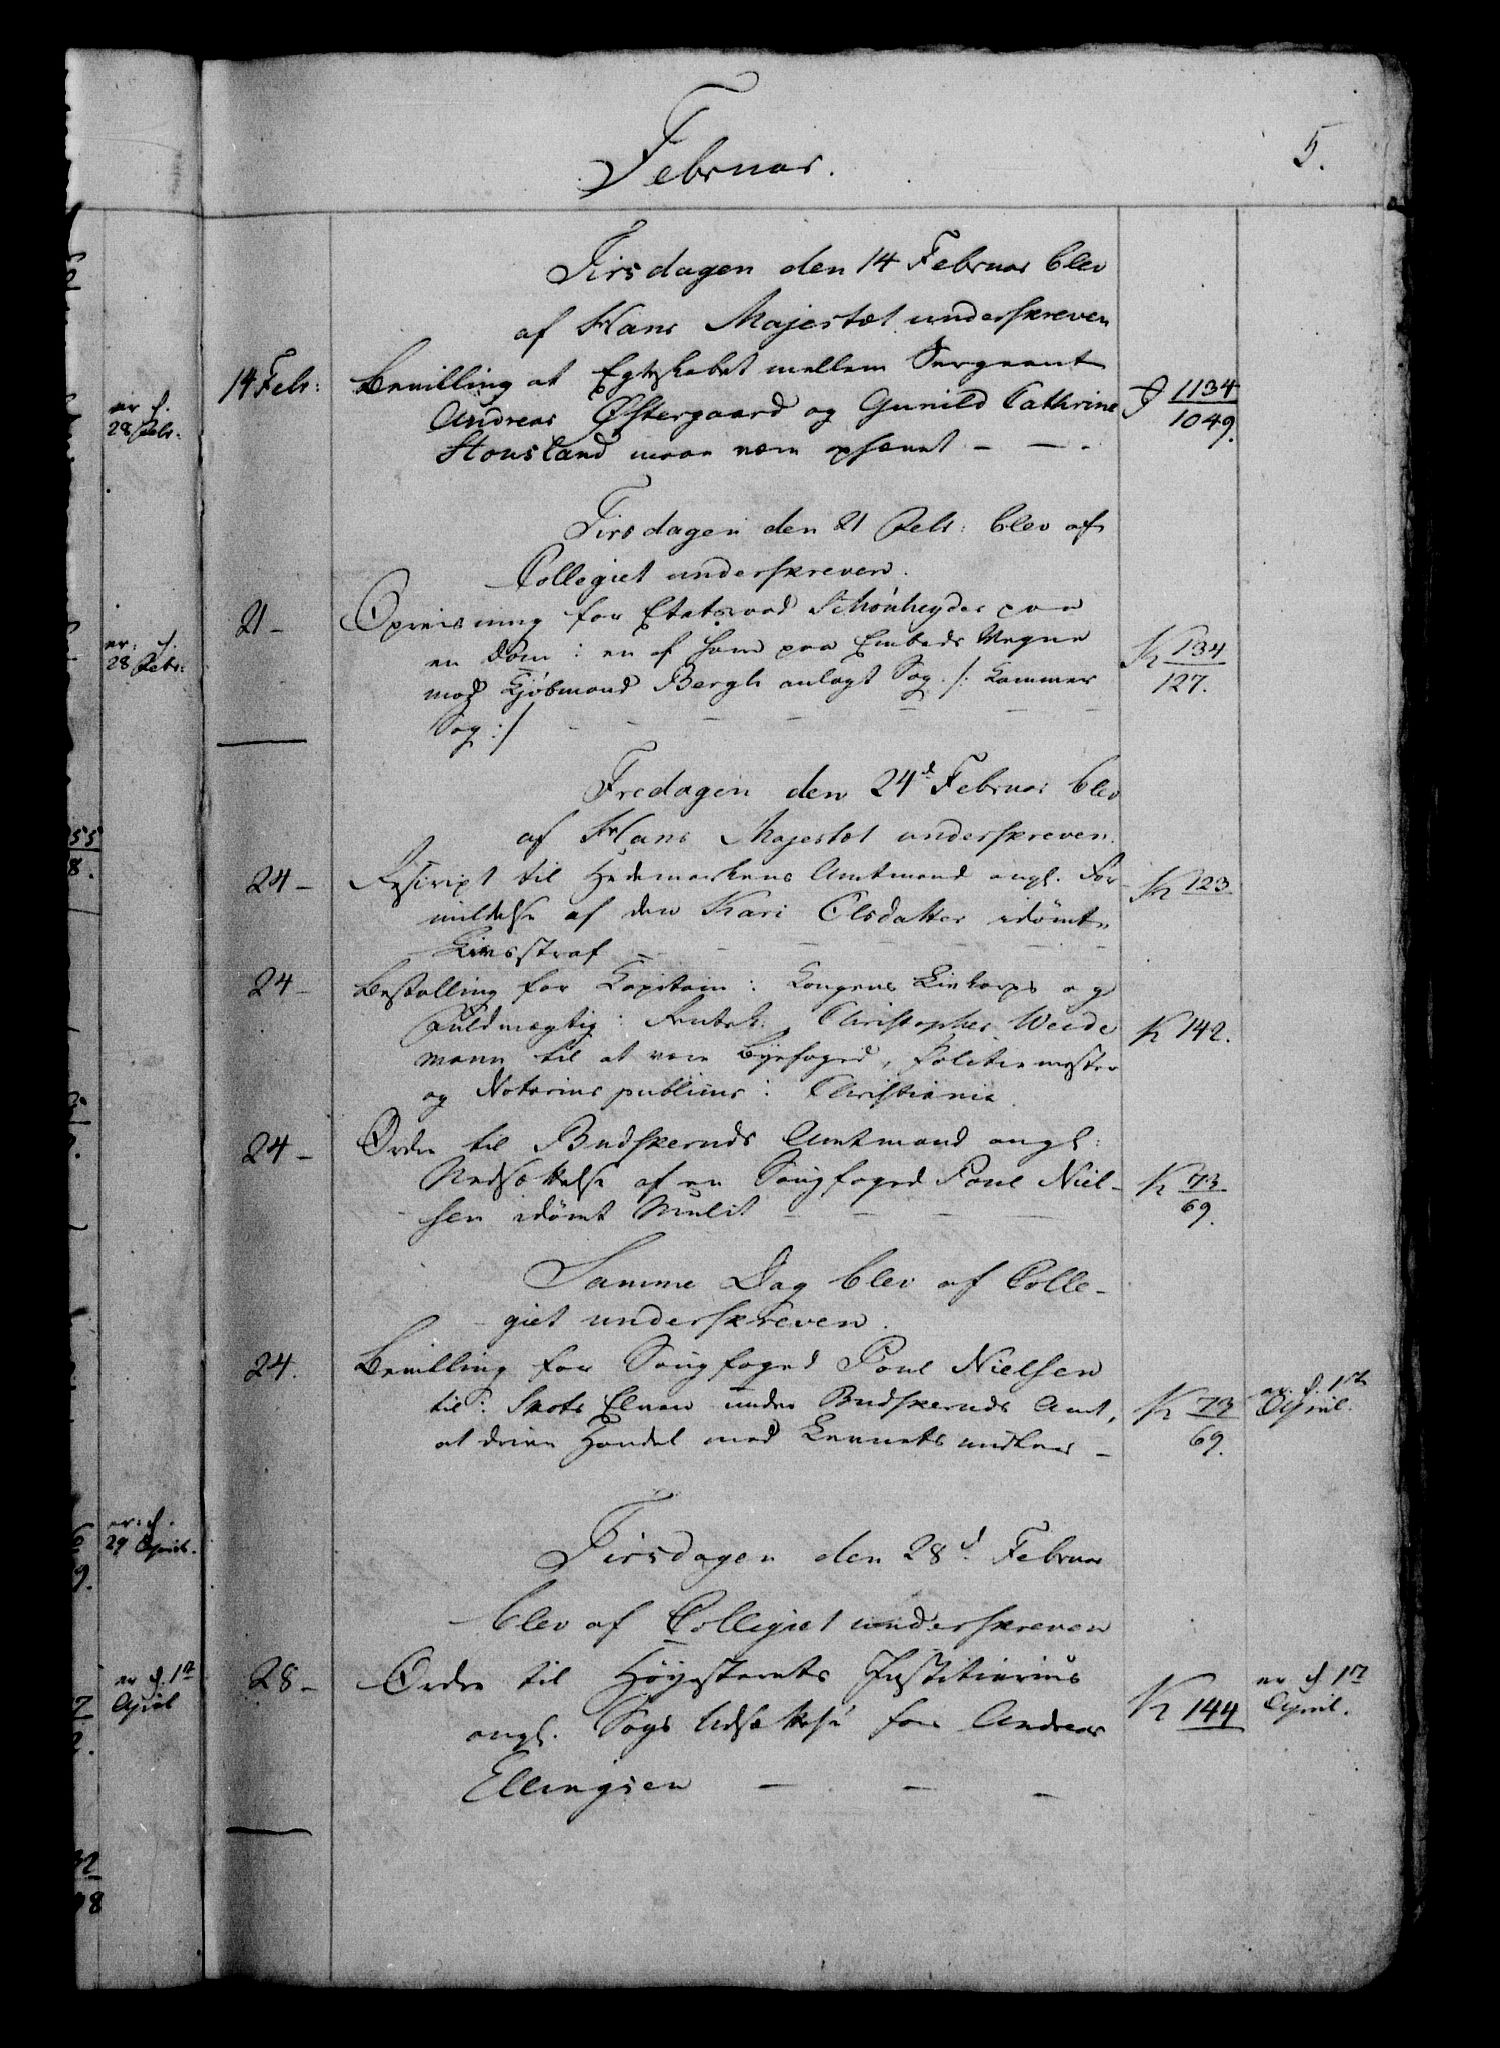 Februar.
5.
Tirsdagen den 14 Februar blev
af Hans Majestæt underskreven
14 Febr: Bevilling at Egteskabet mellem Sergeant
Andreas Østergaard og Gunild Cathrine
Housland maae være ophævet – – –
1134
1049.
Tirsdagen den 21 Febr: blev af
Collegiet underskreven.
21 – Opreisning for Etatsraad Schönheyder paa
en Dom i en af ham paa Embeds Vegne
mod Kjøbmand Bergh anlagt Sag /: Kammer
Sag :/
K 134
127.
Fredagen den 24d Februar blev
af Hans Majestæt underskreven.
24 – Rescript til Hedemarkens Amtmand angl. For-
mildelse af den Kari Olsdatter idømte
Livsstraf
K 123
24 – Bestalling for Capitain i Kongens Livkorps og
Fuldmægtig i Rentek. Christopher Weide
mann til at være Byefoged, Politiemester
og Notarius publicus i Christiania.
K 142.
24 – Ordre til Budskeruds Amtmand angl:
Nedsættelse af en Saugfoged Poul Niel-
sen idømt Mulct
K 73
69.
Samme Dag blev af Colle-
giet underskreven.
24. Bevilling for Saugfoged Poul Nielsen
til i Skots Elven under Budskeruds Amt,
at drive Handel med Levnets midler –
K 73
69.
er. d. 1ste
April.
Tirsdagen den 28d Februar
blev af Collegiet underskreven
28 – Ordre til Høyesterets Justitiarius
angl. Sags Udsættelse for Andreas
Ellingsen – – –
K 144
er d 1ste
April.
er d.
28 Febr.
er: d.
28 Febr:
55
8.
er: d.
29 April.
er d. 1ste
April